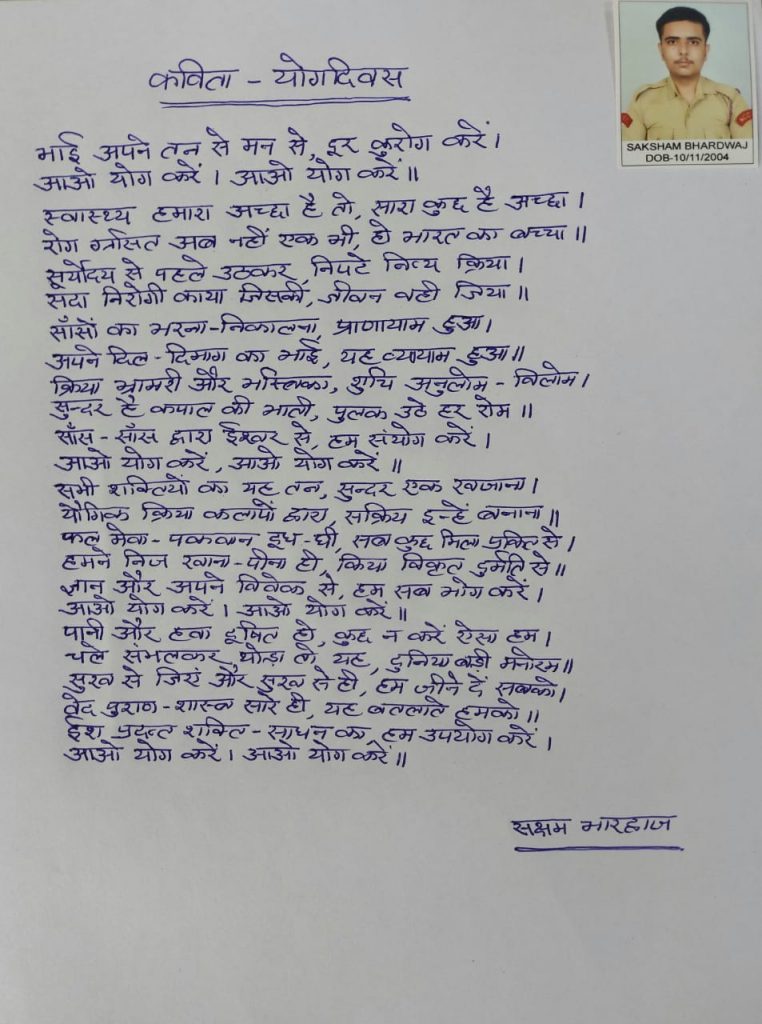 कविता - योगदिवस
SAKSHAM BHARDWAJ
DOB-10/11/2004
भाई अपने तन से मन से, दूर कुरोग करें।
आओ योग करें। आओ योग करें॥
स्वास्थ्य हमारा अच्छा है तो, सारा कुछ है अच्छा।
रोग ग्रसित अब नहीं एक भी, हो भारत का बच्चा॥
सूर्योदय से पहले उठकर, निपटें नित्य क्रिया।
सदा निरोगी काया जिसकी, जीवन वही जिया॥
साँसों का भरना-निकालना, प्राणायाम हुआ।
अपने दिल-दिमाग का भाई, यह व्यायाम हुआ॥
क्रिया भ्रामरी और भस्त्रिका, शुचि अनुलोम-विलोम।
सुन्दर है कपाल की भाती, पुलक उठे हर रोम॥
साँस-साँस द्वारा ईश्वर से, हम संयोग करें।
आओ योग करें, आओ योग करें॥
सभी शक्तियों का यह तन, सुन्दर एक खजाना।
यौगिक क्रिया कलापों द्वारा, सक्रिय इन्हें बनाना॥
फल मेवा-पकवान दूध-घी, सब कुछ मिला प्रकृति से।
हमने निज खाना-पीना ही, किया विकृत दुर्मति से॥
ज्ञान और अपने विवेक से, हम सब भोग करें।
आओ योग करें। आओ योग करें॥
पानी और हवा दूषित हो, कुछ न करें ऐसा हम।
चले संभलकर थोड़ा तो, यह, दुनिया बड़ी मनोरम॥
सुख से जिएं और सुख से ही, हम जीने दें सबको।
वेद पुराण-शास्त्र सारे ही, यह बतलाते हमको॥
ईश प्रदत्त शक्ति-साधन का, हम उपयोग करें।
आओ योग करें। आओ योग करें॥
सक्षम भारद्वाज